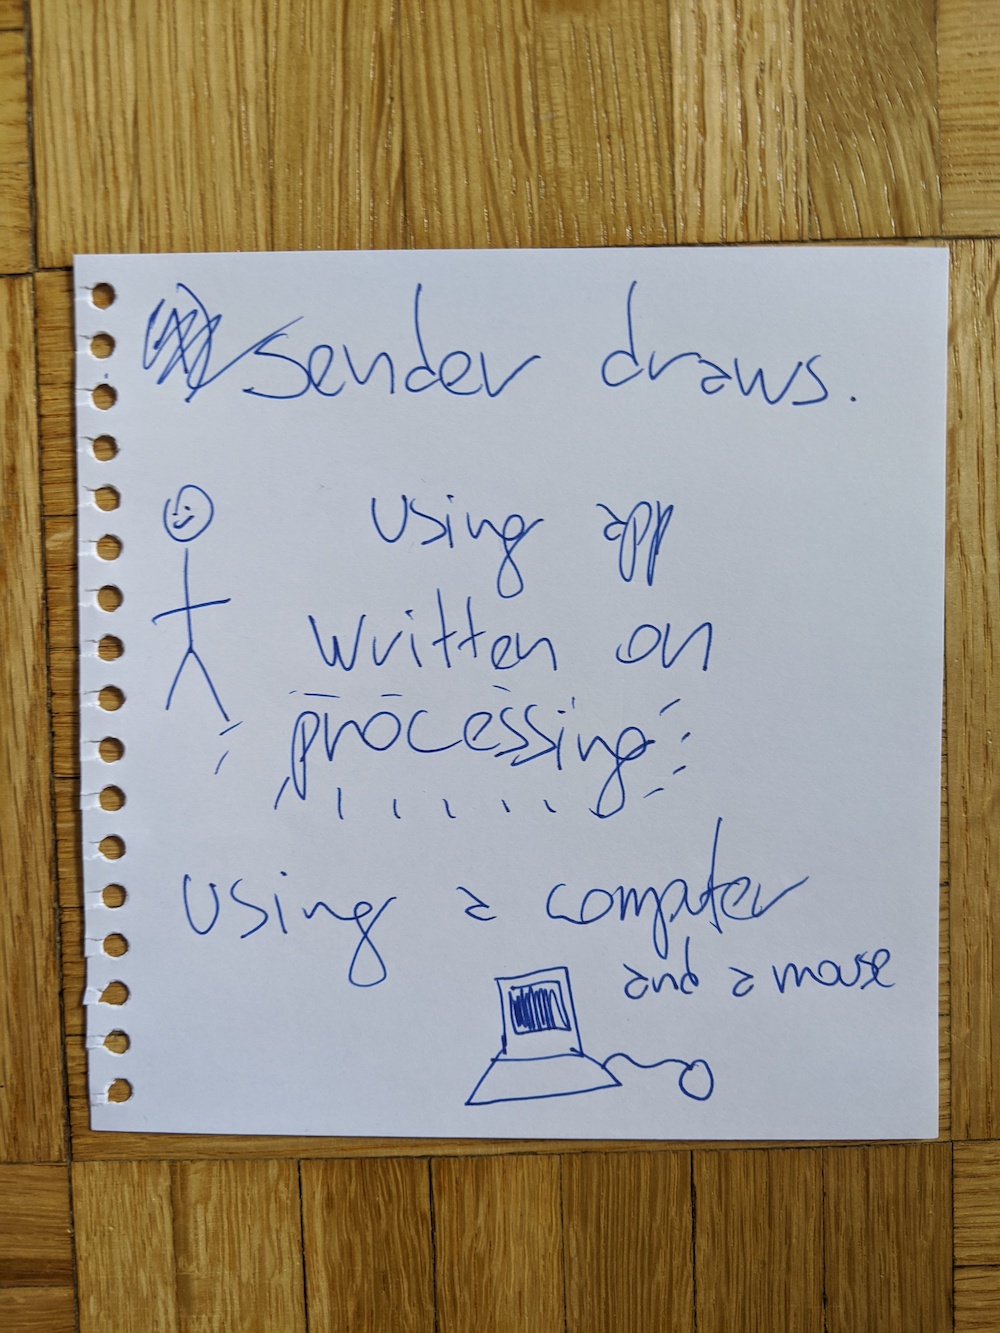 sender draws.
using app
written on
processing
using a computer
and a mouse